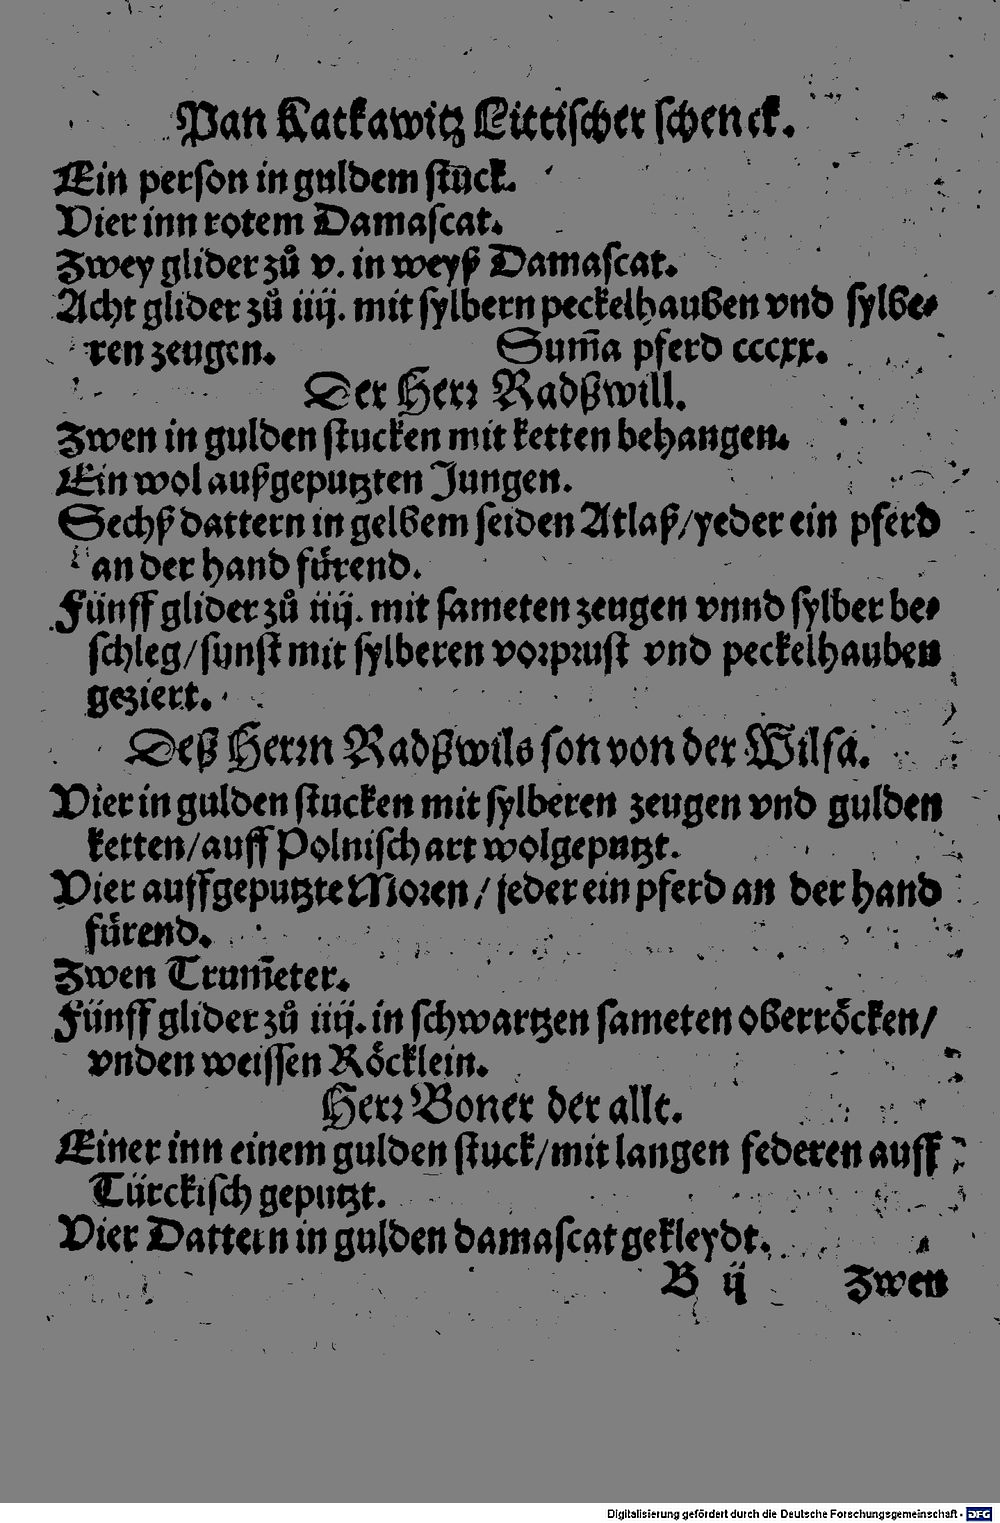 Pan Katkawitz Littischer schenck.
Ein person in guldem stuck.
Vier inn rotem Damascat.
Zwey glider zů v. in weyß Damascat.
Acht glider zů iiij. mit sylbern peckelhauben vnd sylbe⸗
ren zeugen. Sum̃a pferd cccxx.
Der Herr Radßwill.
Zwen in gulden stucken mit ketten behangen.
Ein wol außgeputzten Jungen.
Sechß dattern in gelbem seiden Atlaß/yeder ein pferd
an der hand fürend.
Fünff glider zů iiij. mit sameten zeugen vnnd sylber be⸗
schleg/sunst mit sylberen vorprust vnd peckelhauben
geziert.
Deß Herrn Radßwils son von der Wilsa.
Vier in gulden stucken mit sylberen zeugen vnd gulden
ketten/auff Polnisch art wolgeputzt.
Vier auffgeputzte Moren/jeder ein pferd an der hand
fürend.
Zwen Trum̃eter.
Fünff glider zů iiij. in schwartzen sameten oberröcken/
vnden weissen Röcklein.
Herr Boner der allt.
Einer inn einem gulden stuck/mit langen federen auff
Türckisch geputzt.
Vier Dattern in gulden damascat gekleydt.
B ij Zwen
Digitalisierung gefördert durch die Deutsche Forschungsgemeinschaft - DFG